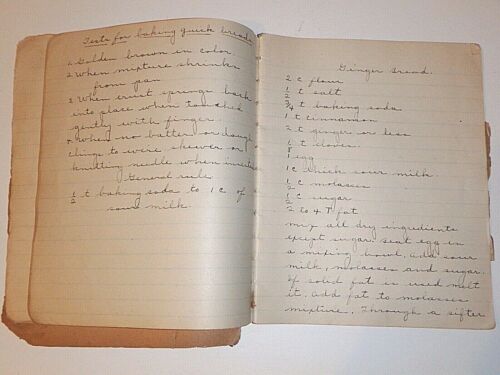 Tests for baking quick breads
1. Golden brown in color.
2. When mixture shrinks
from pan
3. When crust springs back
into place when touched
gently with finger.
4. When no batter or dough
clings to wire skewer or
knitting needle when inserted
General rule
1/2 t baking soda to 1 c of
sour milk.
Ginger Bread.
2 c flour
1/2 t salt
3/4 t baking soda
1 t cinnamon
2 t ginger or less
1/8 t cloves
1 egg
1 c thick sour milk
1/2 c molasses
1/2 c sugar
2 to 4 T fat
mix all dry ingredients
except sugar. beat egg in
a mixing bowl, add sour
milk, molasses and sugar.
If solid fat is used melt
it. add fat to molasses
mixture. Through a sifter